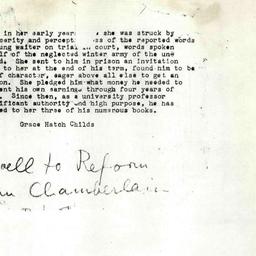 in her early year she was struck by
cerity and percept ss of the reported words
ung waiter on trial court, words spoken
lf of the neglected winter army of the une
d. She sent to him in prison an invitation
to her at the end of his term, found him to be
f character, eager above all else to get an
on. She pledged him what money he needed to
ent his own earning through four years of
. Since then, as a university professor,
ificant authority and high purpose, he has
ed to her three of his numerous books.
Grace Hatch Childs
well to Reform
n Chamberlain